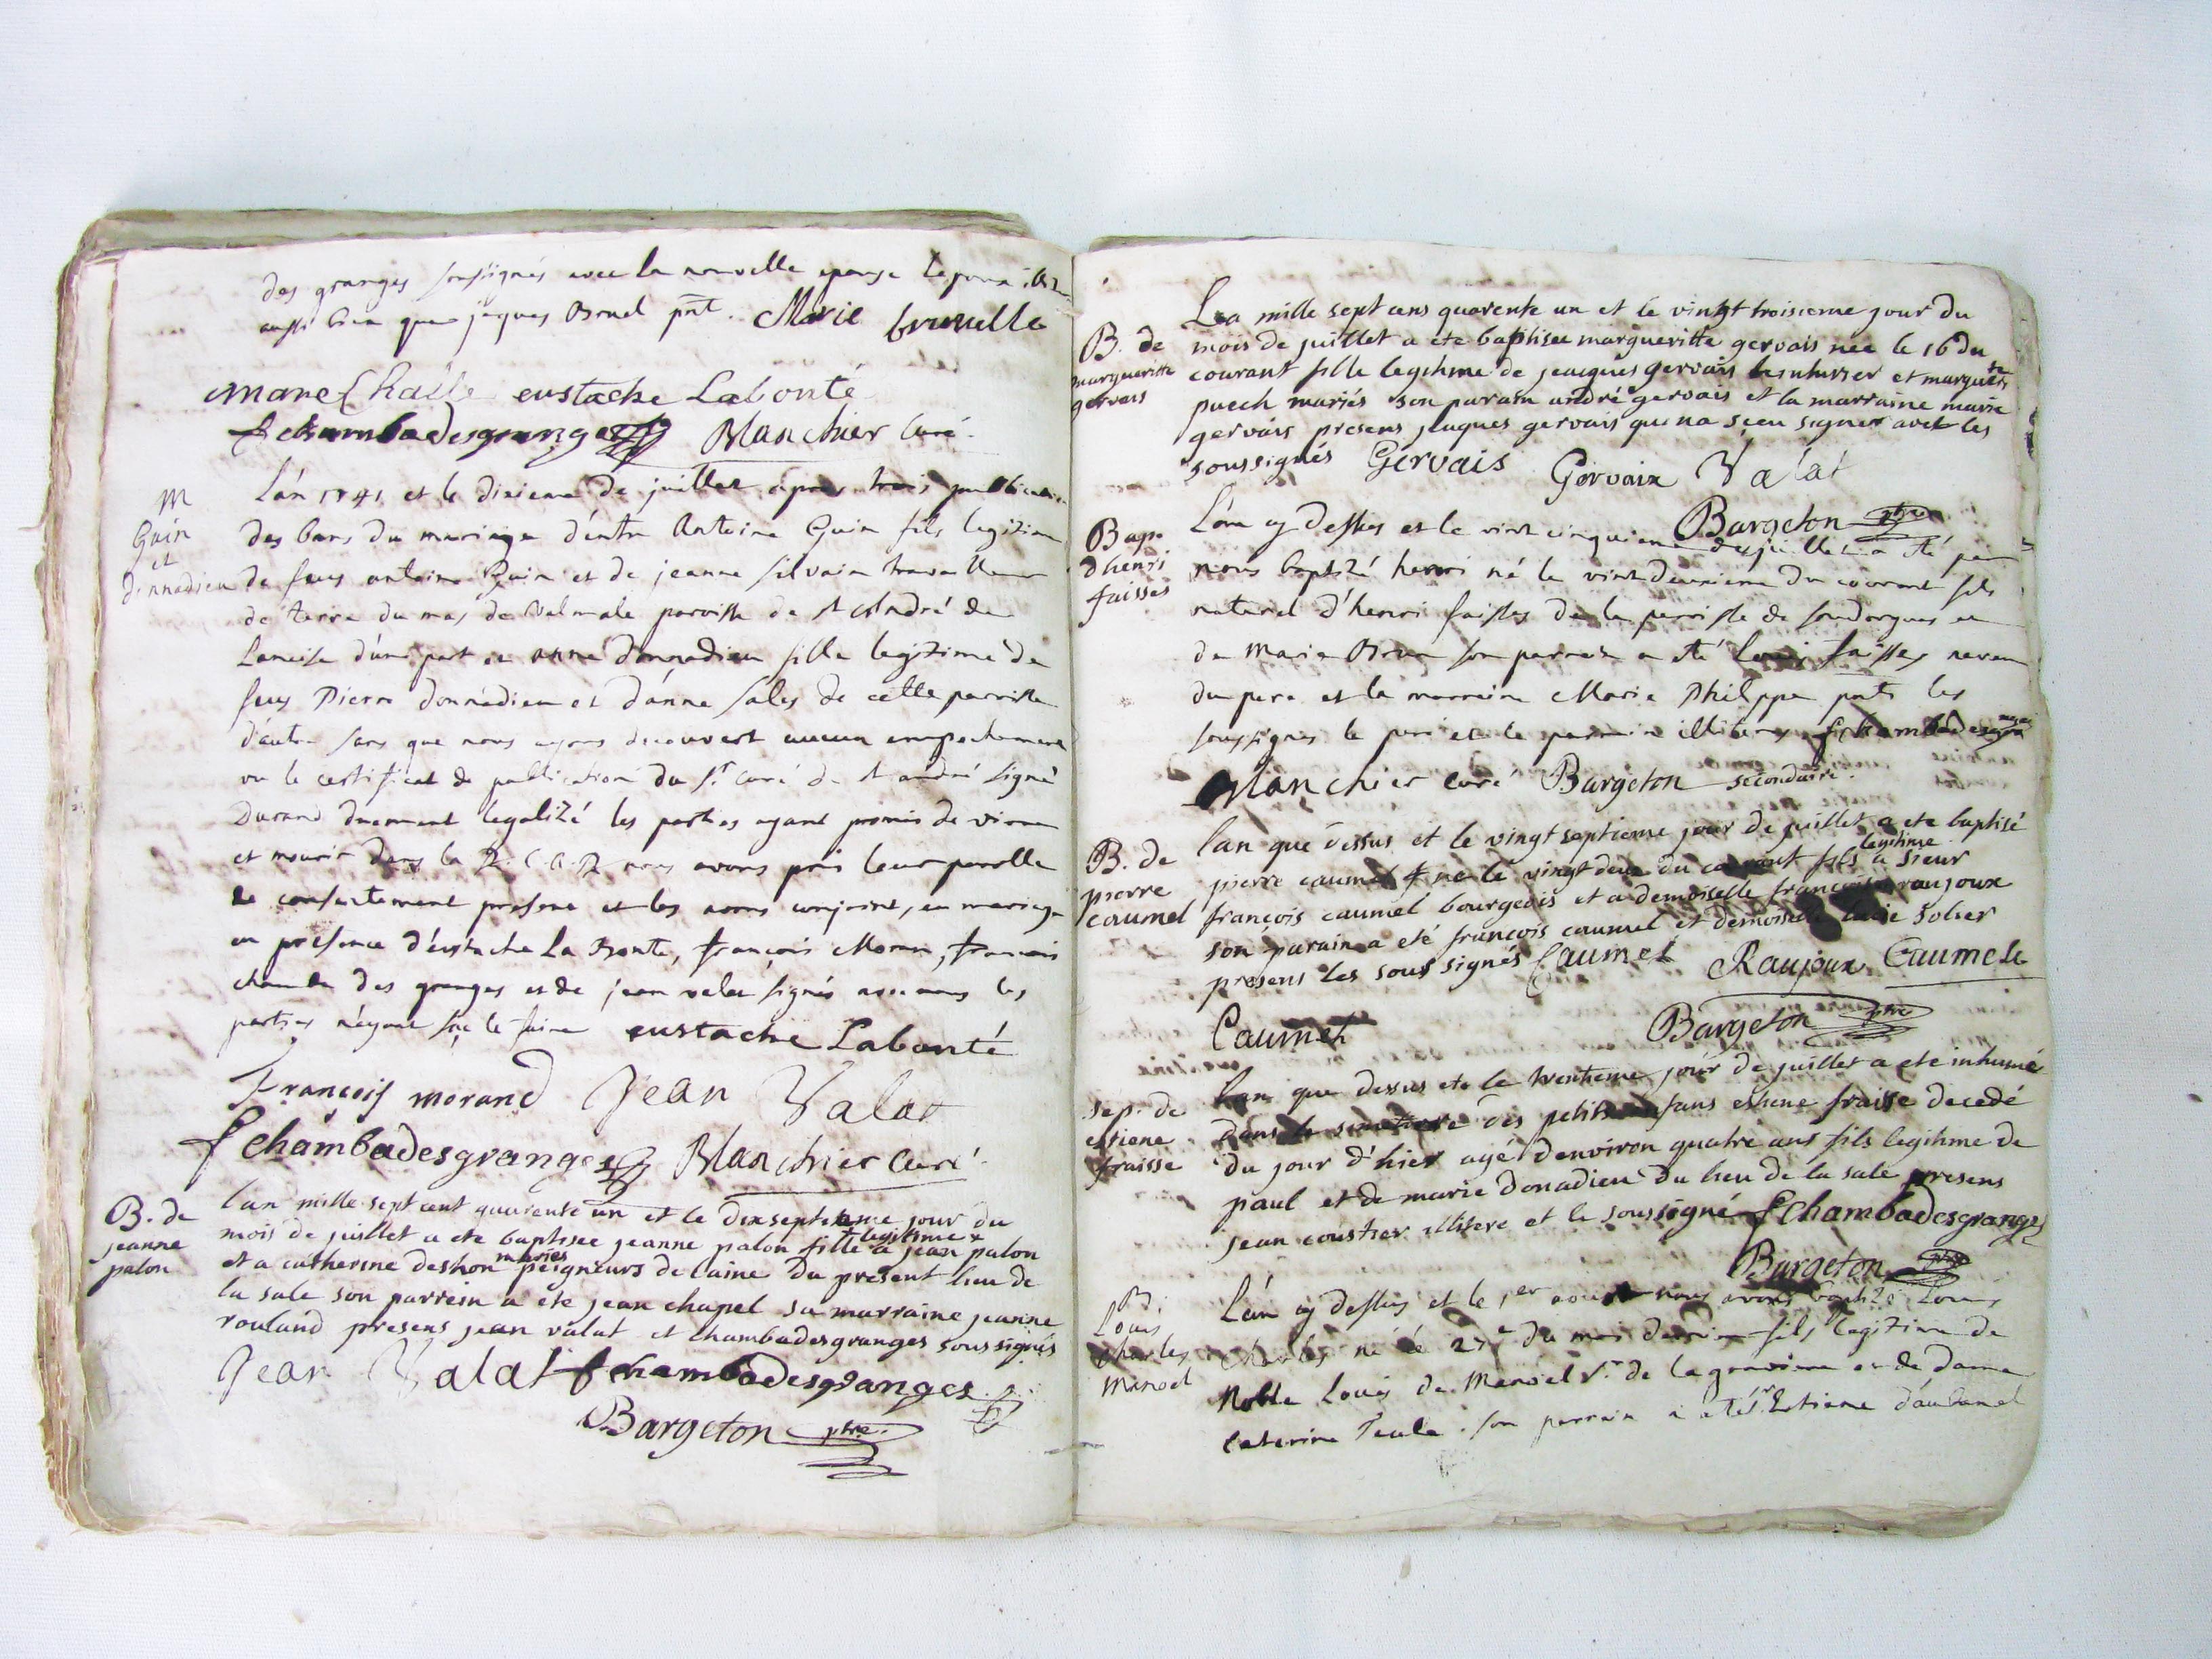 des granges soussignés avec la nouvelle epouse le
aussi bien que jaques Brueil pnt. Marie bruuelle
eustache Labonté
fchambadesgranges Blanchier Curé
M
Guin
et
donnadieu
L'an 1741 et le dixieme de juillet après trois publications
des bans du mariage d'entre Antoine Guin fils legitime
de feus antoine Guin et de jeanne silvain travailleur
de terre du mas de Valmale parroisse de st André de
Lancise d'une part et anne donnadieu fille legitime de
feus Pierre donnadieu et d'anne sales de cette parroisse
d'autre sans que nous ayons decouvert aucun empechement
vu le certificat de publication du sr curé de st andré signé
Durand duement legalizé les parties ayant promis de vivre
et mourir dans la R. C. A. R. nous avons pris leur parolle
de consentement present et les avons conjoint, en mariage
en presence d'eustache La Bonte, françois Moran, francois
chamba des granges et de jean valat signés avec nous les
parties n'ayant sçu le faire eustache Labonté
François morand Jean Valat
fchambadesgranges Blanchier Curé
B. de
jeanne
palon
lan mille sept cent quarente un et le dixseptieme jour du
mois de juillet a ete baptisee jeanne palon fille legitime a jean palon
et a catherine deshon mariés peigneurs de laine du present lieu de
la sale son parrein a ete jean chapel sa marraine jeanne
rouland presens jean valat et chambadesgranges soussignés
Jean Valat fchambadesgranges
Bargeton ptre.
B. de
margueritte
gervais
Lan mille sept cens quarente un et le vingt troisieme jour du
mois de juillet a ete baptisee margueritte gervais née le 16 du
courant fille legitime de jeacques gervais et margueritte
puech mariés son parain andré gervais et la marraine marie
gervais presens jaques gervais qui na sçeu signer avec les
soussignés Gervais Gervaix Valat
Bargeton ptre
Bap.
dhenri
faisses
L'an cy dessus et le vint cinquieme de juillet a été par
nous baptizé henri né le vint deuxieme du courant fils
naturel d'henri faisses de la parroisse de soudorgues et
de Marie Brun son parrein a été Louis faisses neveu
du pere et la marraine Marie Philippe pnts les
soussignes le pere et le parrein illiteres fchambadesgranges
Blanchier curé Bargeton secondaire.
B. de
pierre
caumel
lan que dessus et le vingt septieme jour de juillet a ete baptisé
pierre caumel né le vingt deux du courant fils legitime a sieur
françois caumel bourgeois et a demoiselle françoise raujoux
son parain a eté françois caumel et demoiselle solier
presens les sous signés Caumel Raujoux Caumele
Caumel Bargeton ptre
Sep. de
estiene
fraisse
lan que dessus et le trentieme jour de juillet a ete inhumé
dans le simetiere des petits enfans estiene fraisse decedé
du jour d'hier agé denviron quatre ans fils legitime de
paul et de marie donadieu du lieu de la sale presens
jean coustier illitere et le soussigné fchambadesgranges
Bargeton ptre
B.
Louis
Charles
Manoel
L'an cy dessus et le 1er aoust nous avons baptizé Louis
Charles né le 27e du mois dernier fils legitime de
Noble Louis de Manoel sr. de la graviere et de dame
Caterine Teule. son parrain a été sr Estiene d'audanel